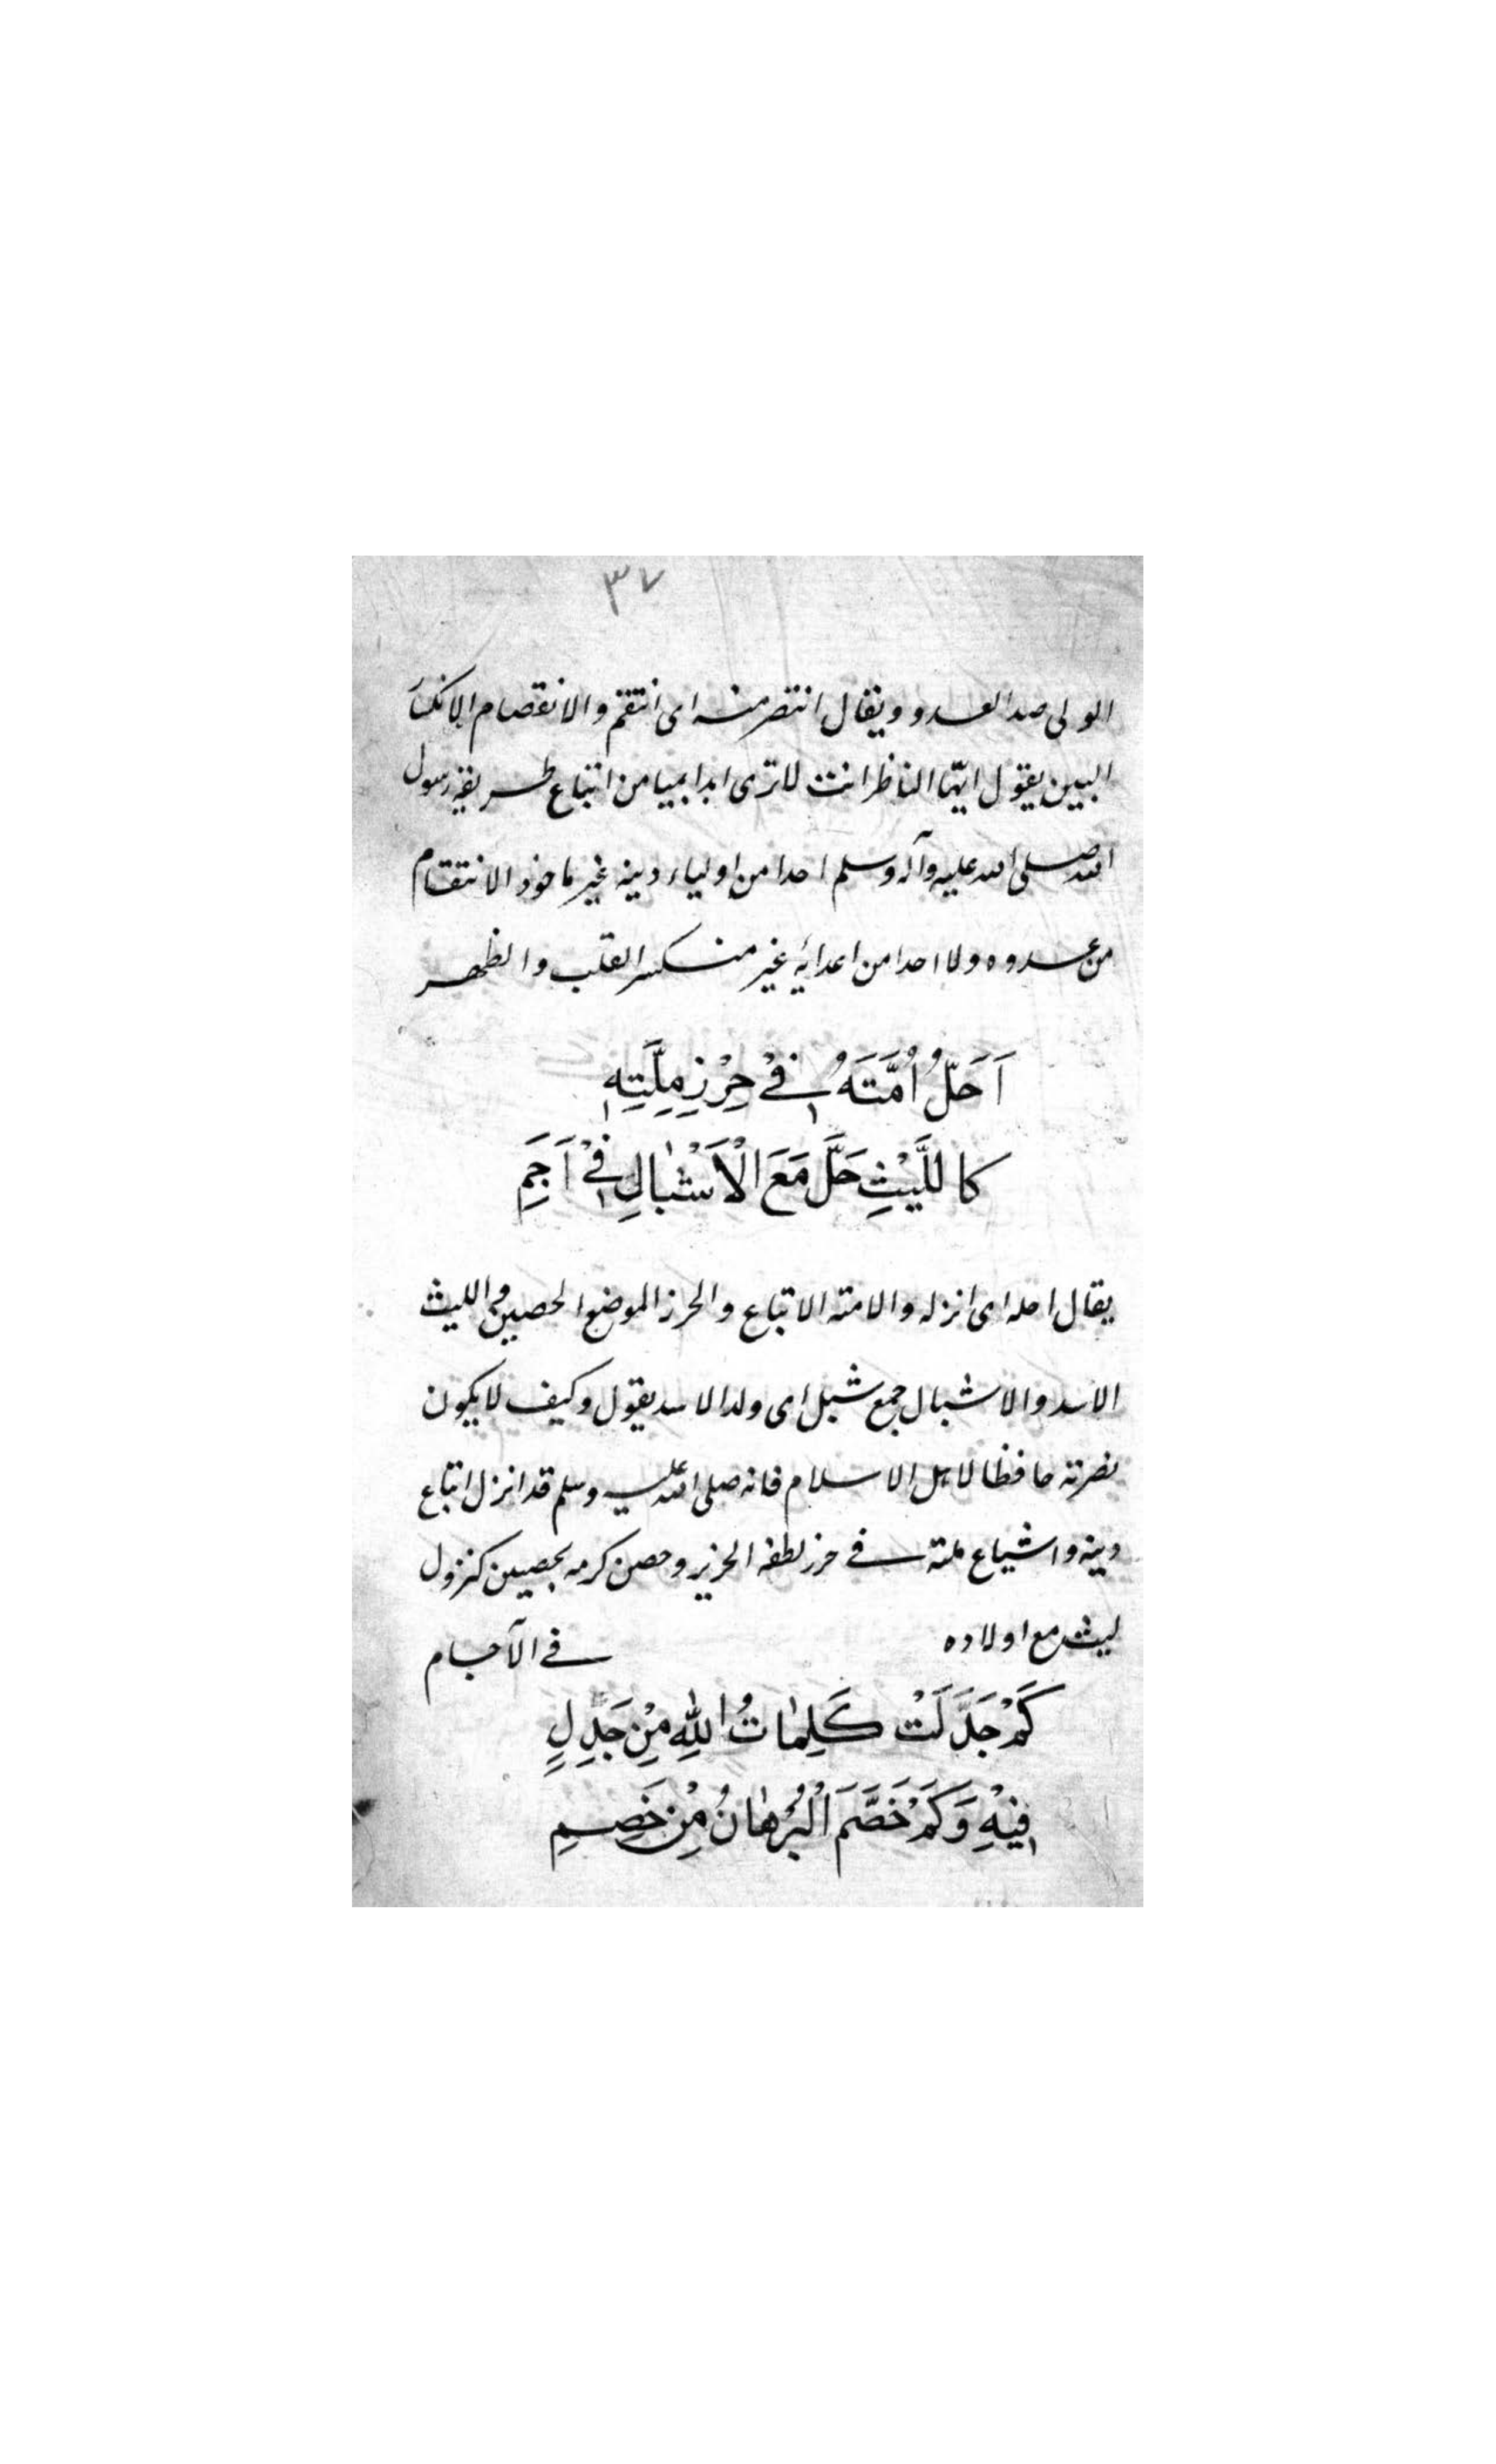 ٣٧
الولى ضد العدو ويقال انتصر منه اى انتقم والانقصام الانكسار
البين يقول ايّها الناظر انت لا ترى ابدا بميامن اتباع طريقة رسول
الله صلى الله عليه وآله وسلم احدا من اولياء دينه غير ماخوذ الانتقام
من عدوه ولا احدا من اعدائه غير منكسر القلب والظهر
اَحَلَّ اُمَّتَهُ فِىْ حِرْزِ مِلَّتِهِ
كَاللَّيْثِ حَلَّ مَعَ الْاَشْبَالِ فِىْ اَجَمِ
يقال احله اى انزله والامة الاتباع والحرز الموضع الحصين والليث
الاسد والاشبال جمع شبل اى ولد الاسد يقول وكيف لا يكون
نصرته حافظا لاهل الاسلام فانه صلى الله عليه وسلم قد انزل اتباع
دينه واشياع ملته فى حرز لطفه الحريز وحصن كرمه الحصين كنزول
ليث مع اولاده فى الآجام
كَمْ جَدَّلَتْ كَلِمَاتُ اللهِ مِنْ جَدِلٍ
فِيْهِ وَكَمْ خَصَّمَ الْبُرْهَانُ مِنْ خَصِمِ